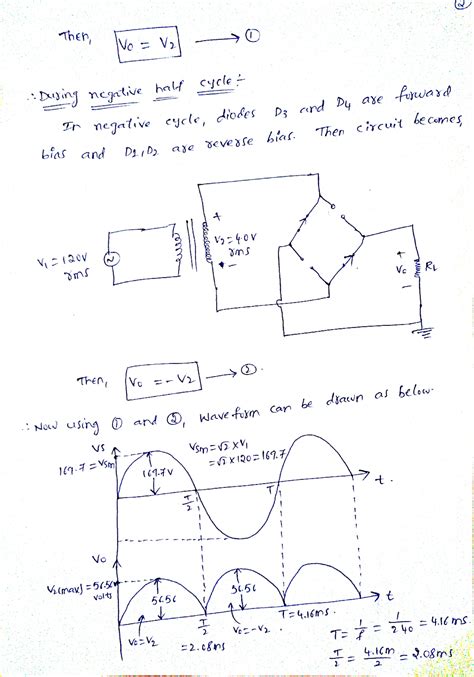 2
Then, Vo = V2 → ①
∴ During negative half cycle :-
In negative cycle, diodes D3 and D4 are forward
bias and D1, D2 are reverse bias. Then circuit becomes,
V1 = 120V
rms
+
V2 = 40V
rms
-
+
Vo
-
RL
Then, Vo = - V2 → ②.
∴ Now using ① and ②, Waveform can be drawn as below.
VS
169.7 = Vsm
169.7V
Vsm = √2 x V1
= √2 x 120 = 169.7
T/2
T
t.
Vo
V2(max) = 56.56
volts
56.56
56.56
Vo = V2
T/2
= 2.08ms
Vo = -V2
T = 4.16ms.
t
T = 1/f = 1/240 = 4.16 ms.
T/2 = 4.16m/2 = 2.08ms